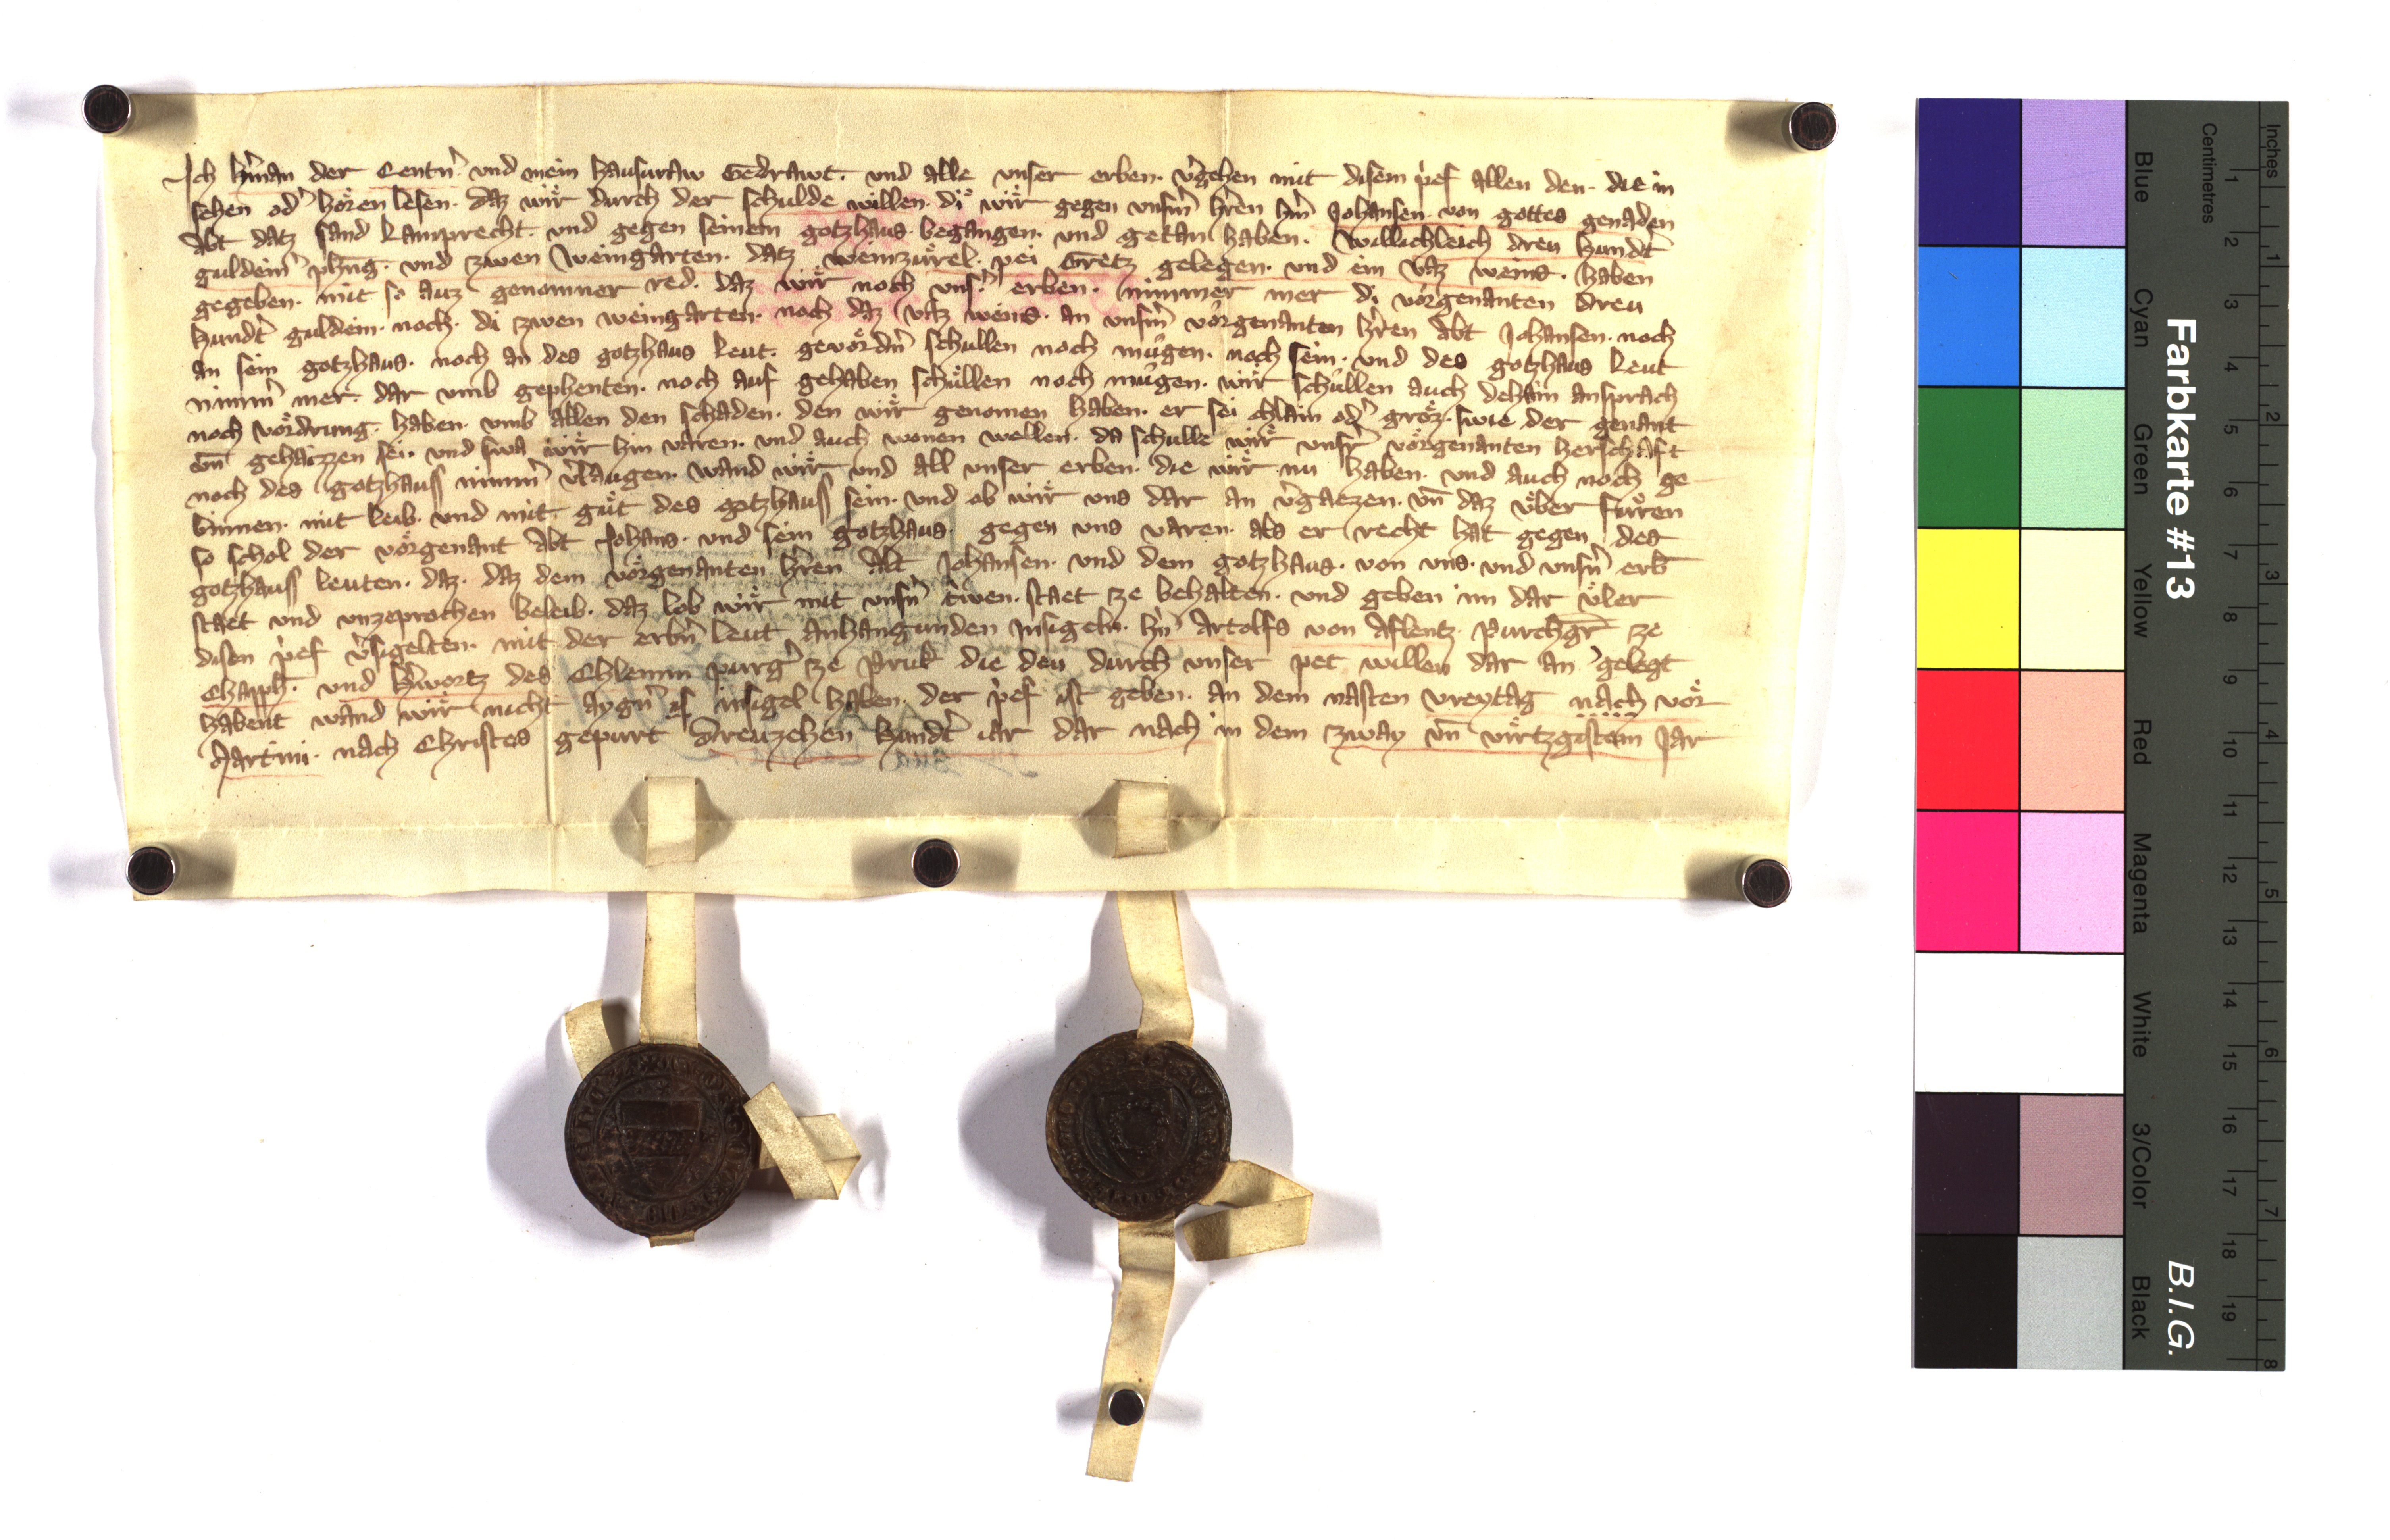 Ich h'man der Centn' und mein hausuraw Gedrawt. und alle unser erben. v'gehen mit disem p'ef allen den. die in
sehen od' hoͤren lesen. daz wiͤr durch der schulde willen. diͤ wiͤr gegen unsm' h'ren h'n Johansen. von gottes genaden
Abt datz sand Lamprecht. und gegen seinem gotzhaus. begangen. und getan haben. Willichleich dreu hundt'
guldeim' phn̄g. und zwen Weingarten. datz weinzuͤrel. pei Gretz gelegen. und ein vaz weins. haben
gegeben. mit so auz genomner red. daz wiͤr noch uns' erben. nimmer mer di voͤrgenanten dreu
hundt' guldein. noch. di zwen weingarten. noch daz vaz weins. an unsm' voͤrgenanten h'ren Abt Johansen. noch
an sein gotzhaus. noch an des gotzhaus leut. gevoͤrdn' schullen noch muͤgen. noch sein. und des gotzhaus leut
nimm' mer. dar umb gephenten. noch auf gehaben schuͤllen noch muͤgen. wiͤr schuͤllen auch dehain ansprach
noch voͤdrung. haben. umb allen den schaden. den wiͤr genomen haben. er sei chlain od' groͤz. swie der genant
od' gehaizzen sei. und swa wiͤr hin varen. und auch wonen wellen. da schulle wiͤr unsr' voͤrgenanten herschaft
noch des gotzhauss nimm' v'laugen. Wand wiͤr und all unser erben. die wiͤr nu haben. und auch noch ge
binnen. mit leib. und mit guͤt des gotzhauss sein. und ob wiͤr uns dar an v'gaezen. un̄ daz uͤber fuͤren
so schol der voͤrgenant Abt Johans. und sein gotzhaus. gegen uns varen. als er recht hat gegen des
gotzhauss leuten. daz. daz dem voͤrgenanten h'ren Abt Johansen. und dem gotzhaus. von uns. und unsn' erb̄
staet und unzeprochen beleib. daz lob wiͤr mit unsn' triwen. staet ze behalten. und geben im dar uͤber
disen p'ef v'sigelten. mit der erbn' leut anhangunden Insigeln. h'n Artolfs von Aflentz. Purchgr̄ ze
Chapph̄. und h'wortz des Chlemm purg' ze Pruk die den durch unser pet willen dar an gelegt
habent wand wiͤr nicht aygn' insigel haben. der p'ef ist geben. an dem nasten vreytag nach voͤr
Martini. nach Christes gepurt Dreuzehen hundt' iar dar nach in dem zway un̄ viͤrtzgistem Jar
Farbkarte #13
B.I.G.
Blue
Cyan
Green
Yellow
Red
Magenta
White
3/Color
Black
Centimetres
1 2 3 4 5 6 7 8 9 10 11 12 13 14 15 16 17 18 19
Inches
1 2 3 4 5 6 7 8